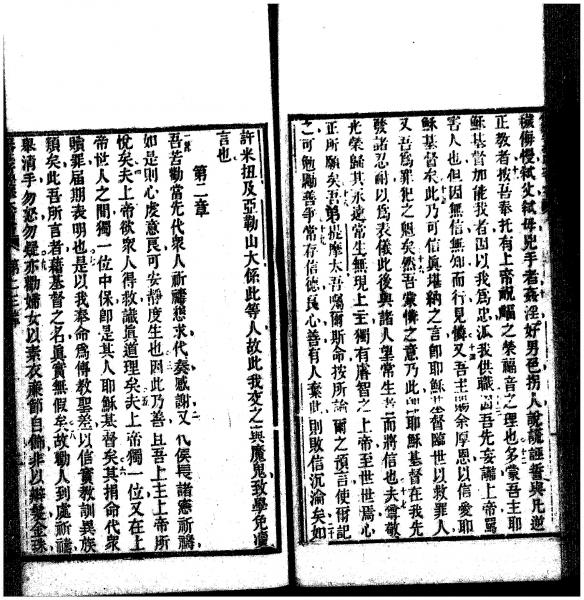 穢侮慢弒父弒母兇手者姦淫好男色拐人說謊誣誓與凡逆
正教者按吾奉托有上帝祝嘏之榮福音之理也多蒙吾主耶
穌基督加能我者因以我為忠派我供職因吾先妄讟上帝罵
害人也但因無信無知而行見憐又吾主賜余厚恩以信愛耶
穌基督矣此乃可信眞堪納之言卽耶穌基督臨世以救罪人
又吾為罪犯之魁矣然吾蒙憐之意乃此卽耶穌基督在我先
發諸忍耐以為表儀此後與諸人望常生者而將信也夫尊敬
光榮歸其永遠常生無現上主獨有睿智之上帝至世世焉心
正所願矣吾弟提摩太吾囑爾斯命按所論爾之預言使爾記
之可勉勵善爭常存信德良心善有人棄此則敗信沉淪矣如
許米扭及亞勒山大係此等人故此我交之與魔鬼致學免瀆
言也
第二章
吾若勸當先代衆人祈禱懇求代奏感謝又代侯長諸憲祈禱
如是則心虔意良可安靜度生也因此乃善且吾上主上帝所
悅矣夫上帝欲衆人得救識眞道理矣夫上帝獨一位又在上
帝世人之間獨一位中保卽是其人耶穌基督矣其捐命代衆
贖罪屆期表明也是以我奉命為傳教聖差以信實教訓異族
類矣此吾所言者藉基督之名眞實無假矣故勸人到處祈禱
舉清手勿怒勿疑亦勸婦女以素衣廉節自飾非以辮髮金珠